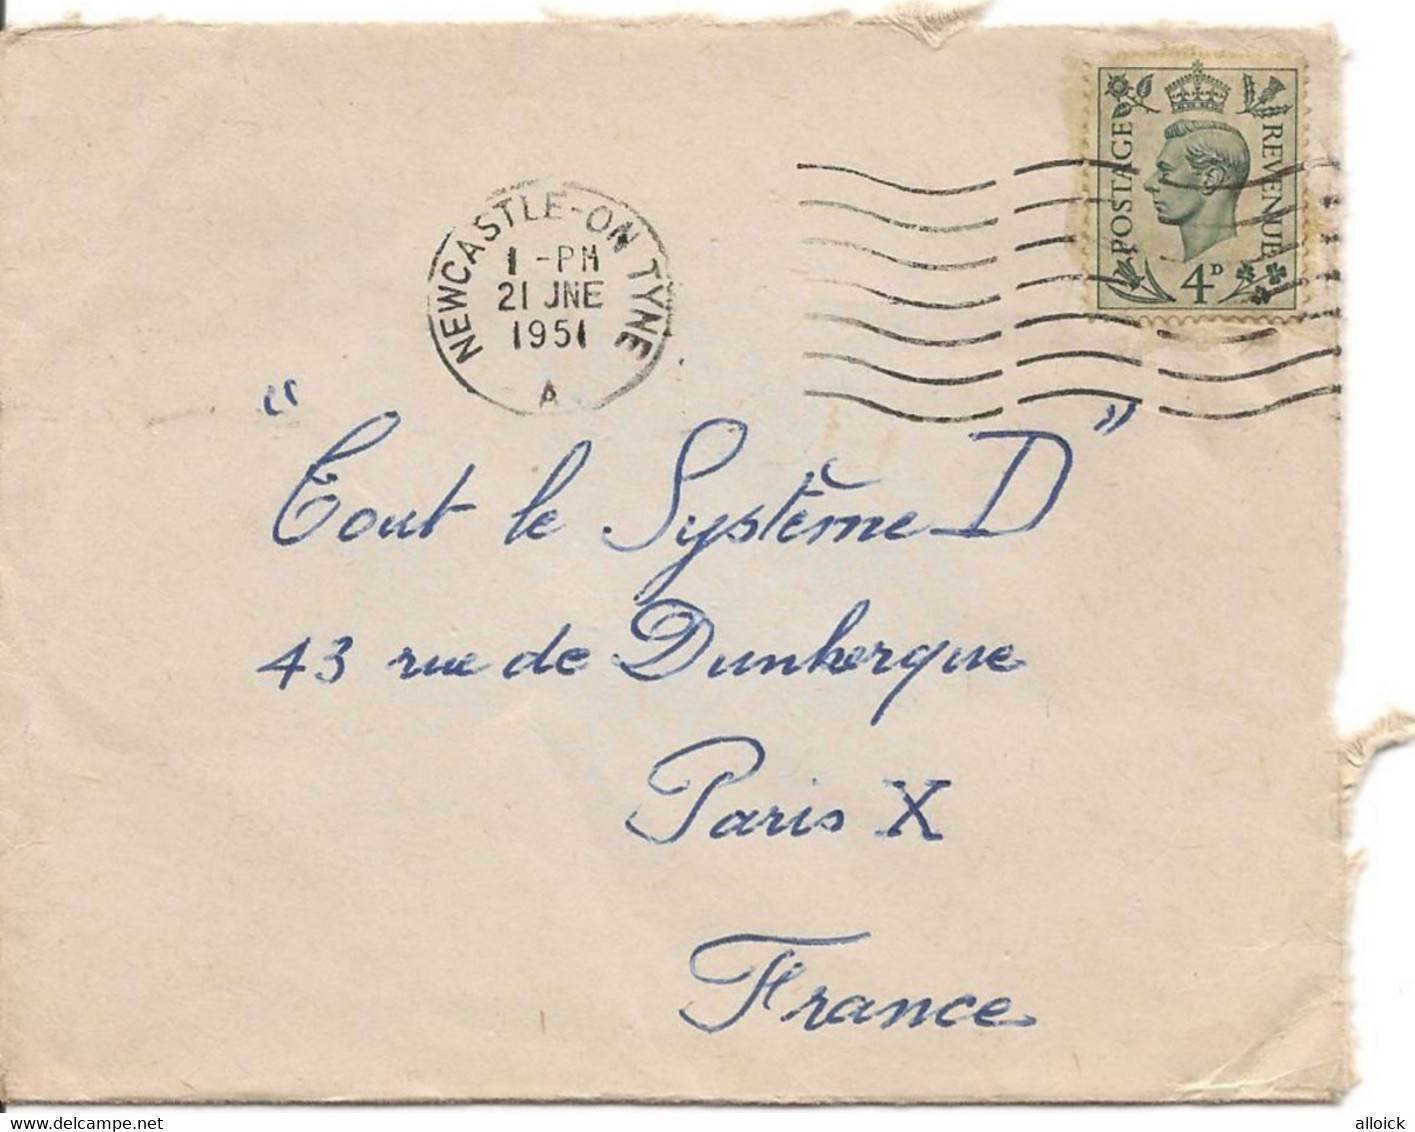 POSTAGE
REVENUE
4D
NEWCASTLE-ON TYNE
1-PM
21 JNE
1951
A
"Tout le Système D"
43 rue de Dunkerque
Paris X
France
www.delcampe.net
alloick